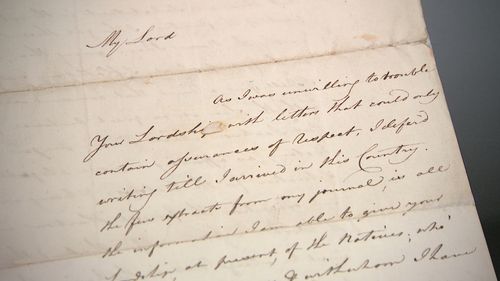 My Lord
As I was unwilling to trouble
Your Lordship with letters that could only
contain assurances of respect, I defer'd
writing till I arrived in this Country.
the few extracts from my journal, is all
the information I am able to give your
at present, of the Natives; who'
I have